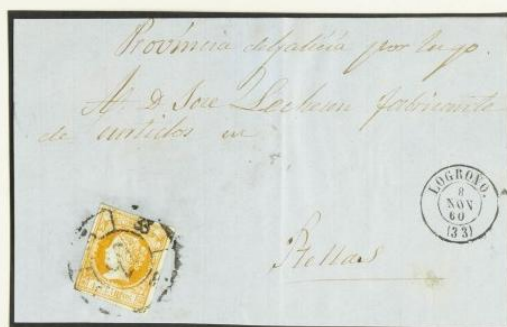 Provincia de Galicia por Lugo.
A D. Jose fabricante
de curtidos en
LOGROÑO.
8
NOV
60
(33)
33